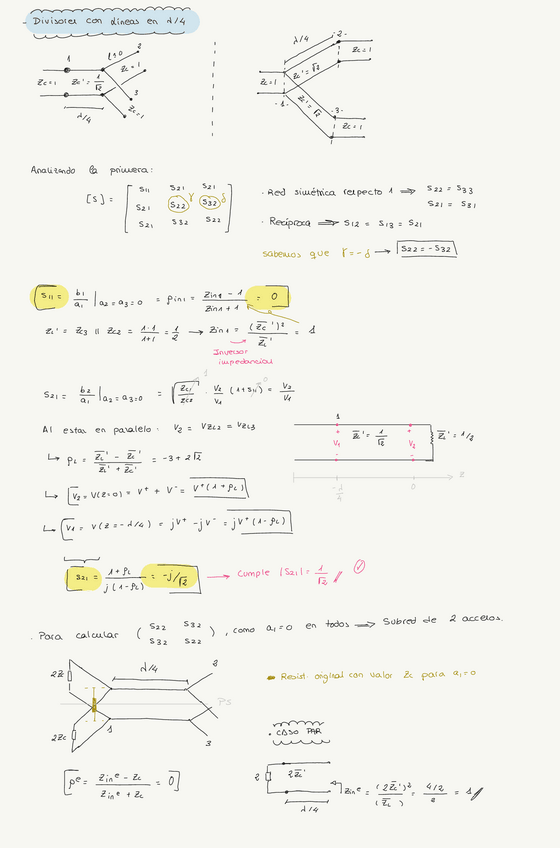 - Divisores con líneas en λ/4
1
l≈0
2
Zc=1
Zc' = 1/√2
Zc=1
3
Zc=1
λ/4
λ/4
-2-
Zc=1
Zc=1
Zc'=√2
-1-
Zc'=√2
-3-
Zc=1
Analizando la primera:
[S] = [ S11 S21 S21
S21 S22 γ S32 δ
S21 S32 S22 ]
· Red simétrica respecto 1 ⟹ S22 = S33
S21 = S31
· Recíproca ⟹ S12 = S13 = S21
sabemos que γ=-δ → S22 = -S32
S11 = b1/a1 | a2=a3=0 = ρin1 = (Zin1 - 1)/(Zin1 + 1) = 0
ZL' = Zc3 || Zc2 = 1·1/(1+1) = 1/2 → Zin1 = (Zc')²/ZL' = 1
Inversor
impedancias
S21 = b2/a1 | a2=a3=0 = √(Zc1/Zc2) · V2/V1 (1+S11) = V2/V1
1
0
Al estar en paralelo: V2 = VZc2 = VZc3
↳ ρL = (ZL' - Zc')/(ZL' + Zc') = -3+2√2
↳ V2 = V(z=0) = V⁺ + V⁻ = V⁺(1+ρL)
↳ V1 = V(z=-λ/4) = jV⁺ - jV⁻ = jV⁺(1-ρL)
1
+
V1
-
Zc' = 1/√2
+
V2
-
ZL' = 1/2
-λ/4
0
z
S21 = (1+ρL)/(j(1-ρL)) = -j/√2 → Cumple |S21| = 1/√2
· Para calcular ( S22 S32
S32 S22 ), como a1=0 en todos ⟹ Subred de 2 accesos.
2Zc
2Zc
λ/4
2
PS
1
3
Resist. original con valor Zc para a1=0
· CASO PAR
ρᵉ = (Zinᵉ - Zc)/(Zinᵉ + Zc) = 0
2
2Zc'
λ/4
Zinᵉ = (2Zc')²/(ZL) = (4/2)/2 = 1